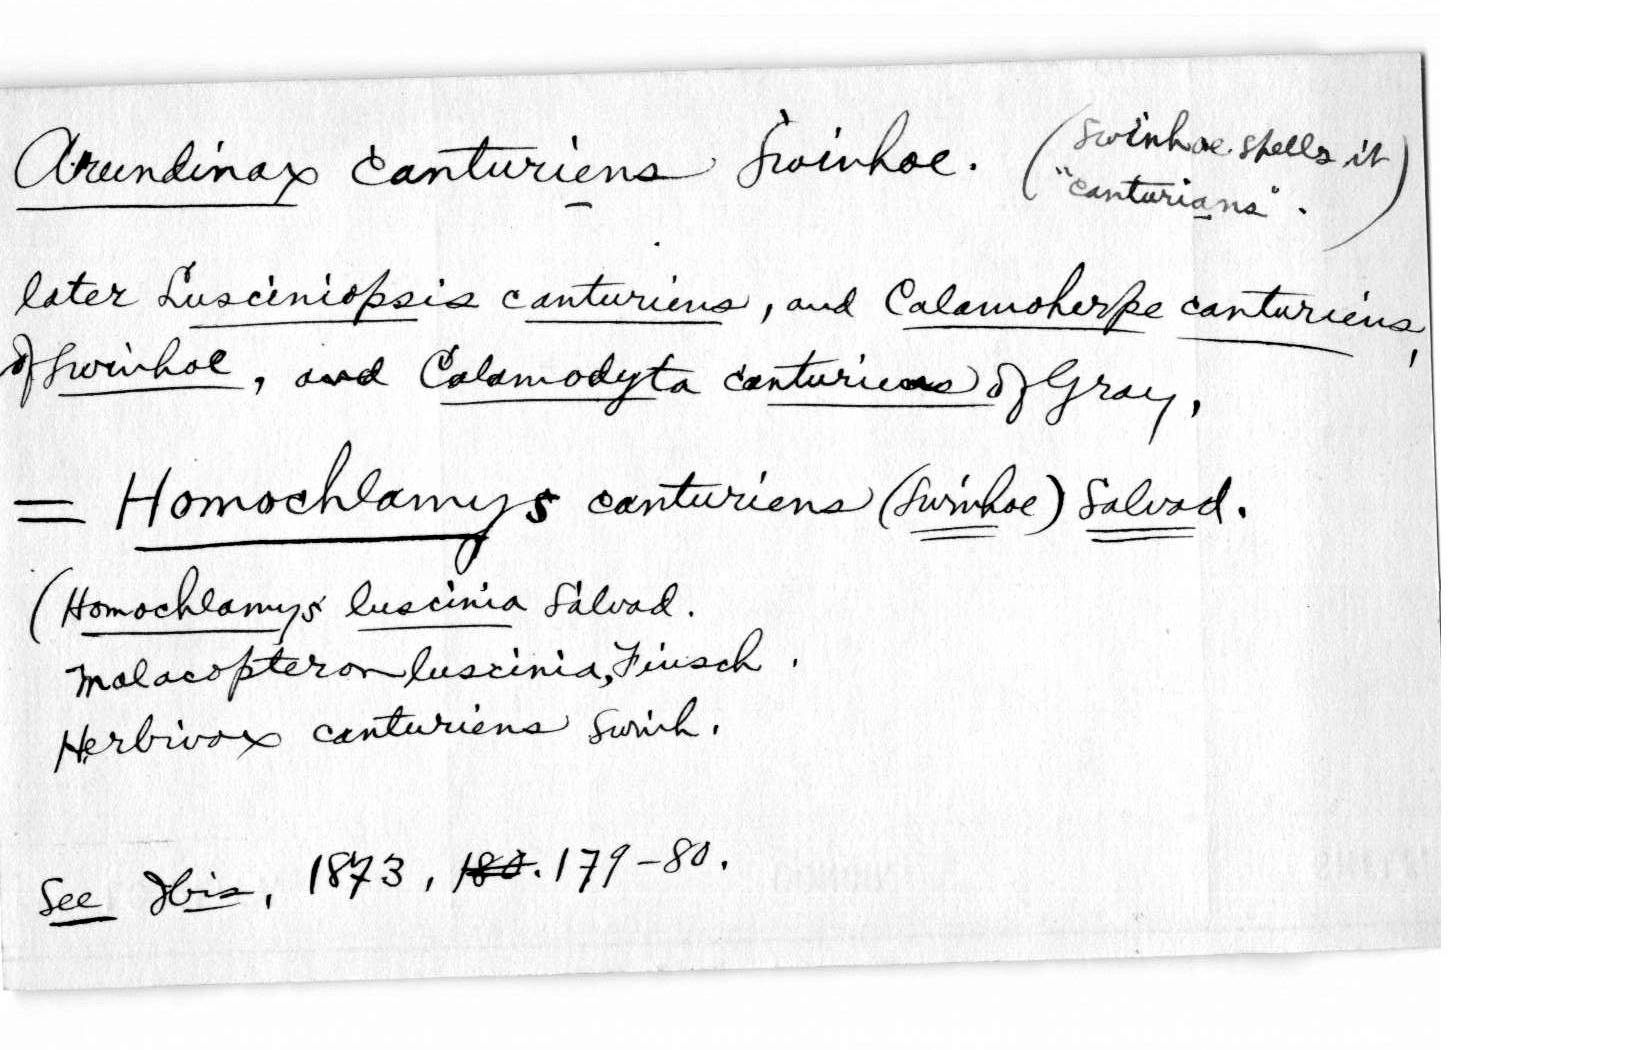 Arundinax canturiens Swinhoe. (Swinhoe spells it
"canturians".)
later Lusciniopsis canturiens, and Calamoherpe canturiens,
of Swinhoe, and Calamodyta canturiens of Gray,
= Homochlamys canturiens (Swinhoe) Salvad.
(Homochlamys luscinia Salvad.
Malacopteron luscinia, Finsch.
Herbivox canturiens Swinh.
See Ibis, 1873, 180. 179-80.